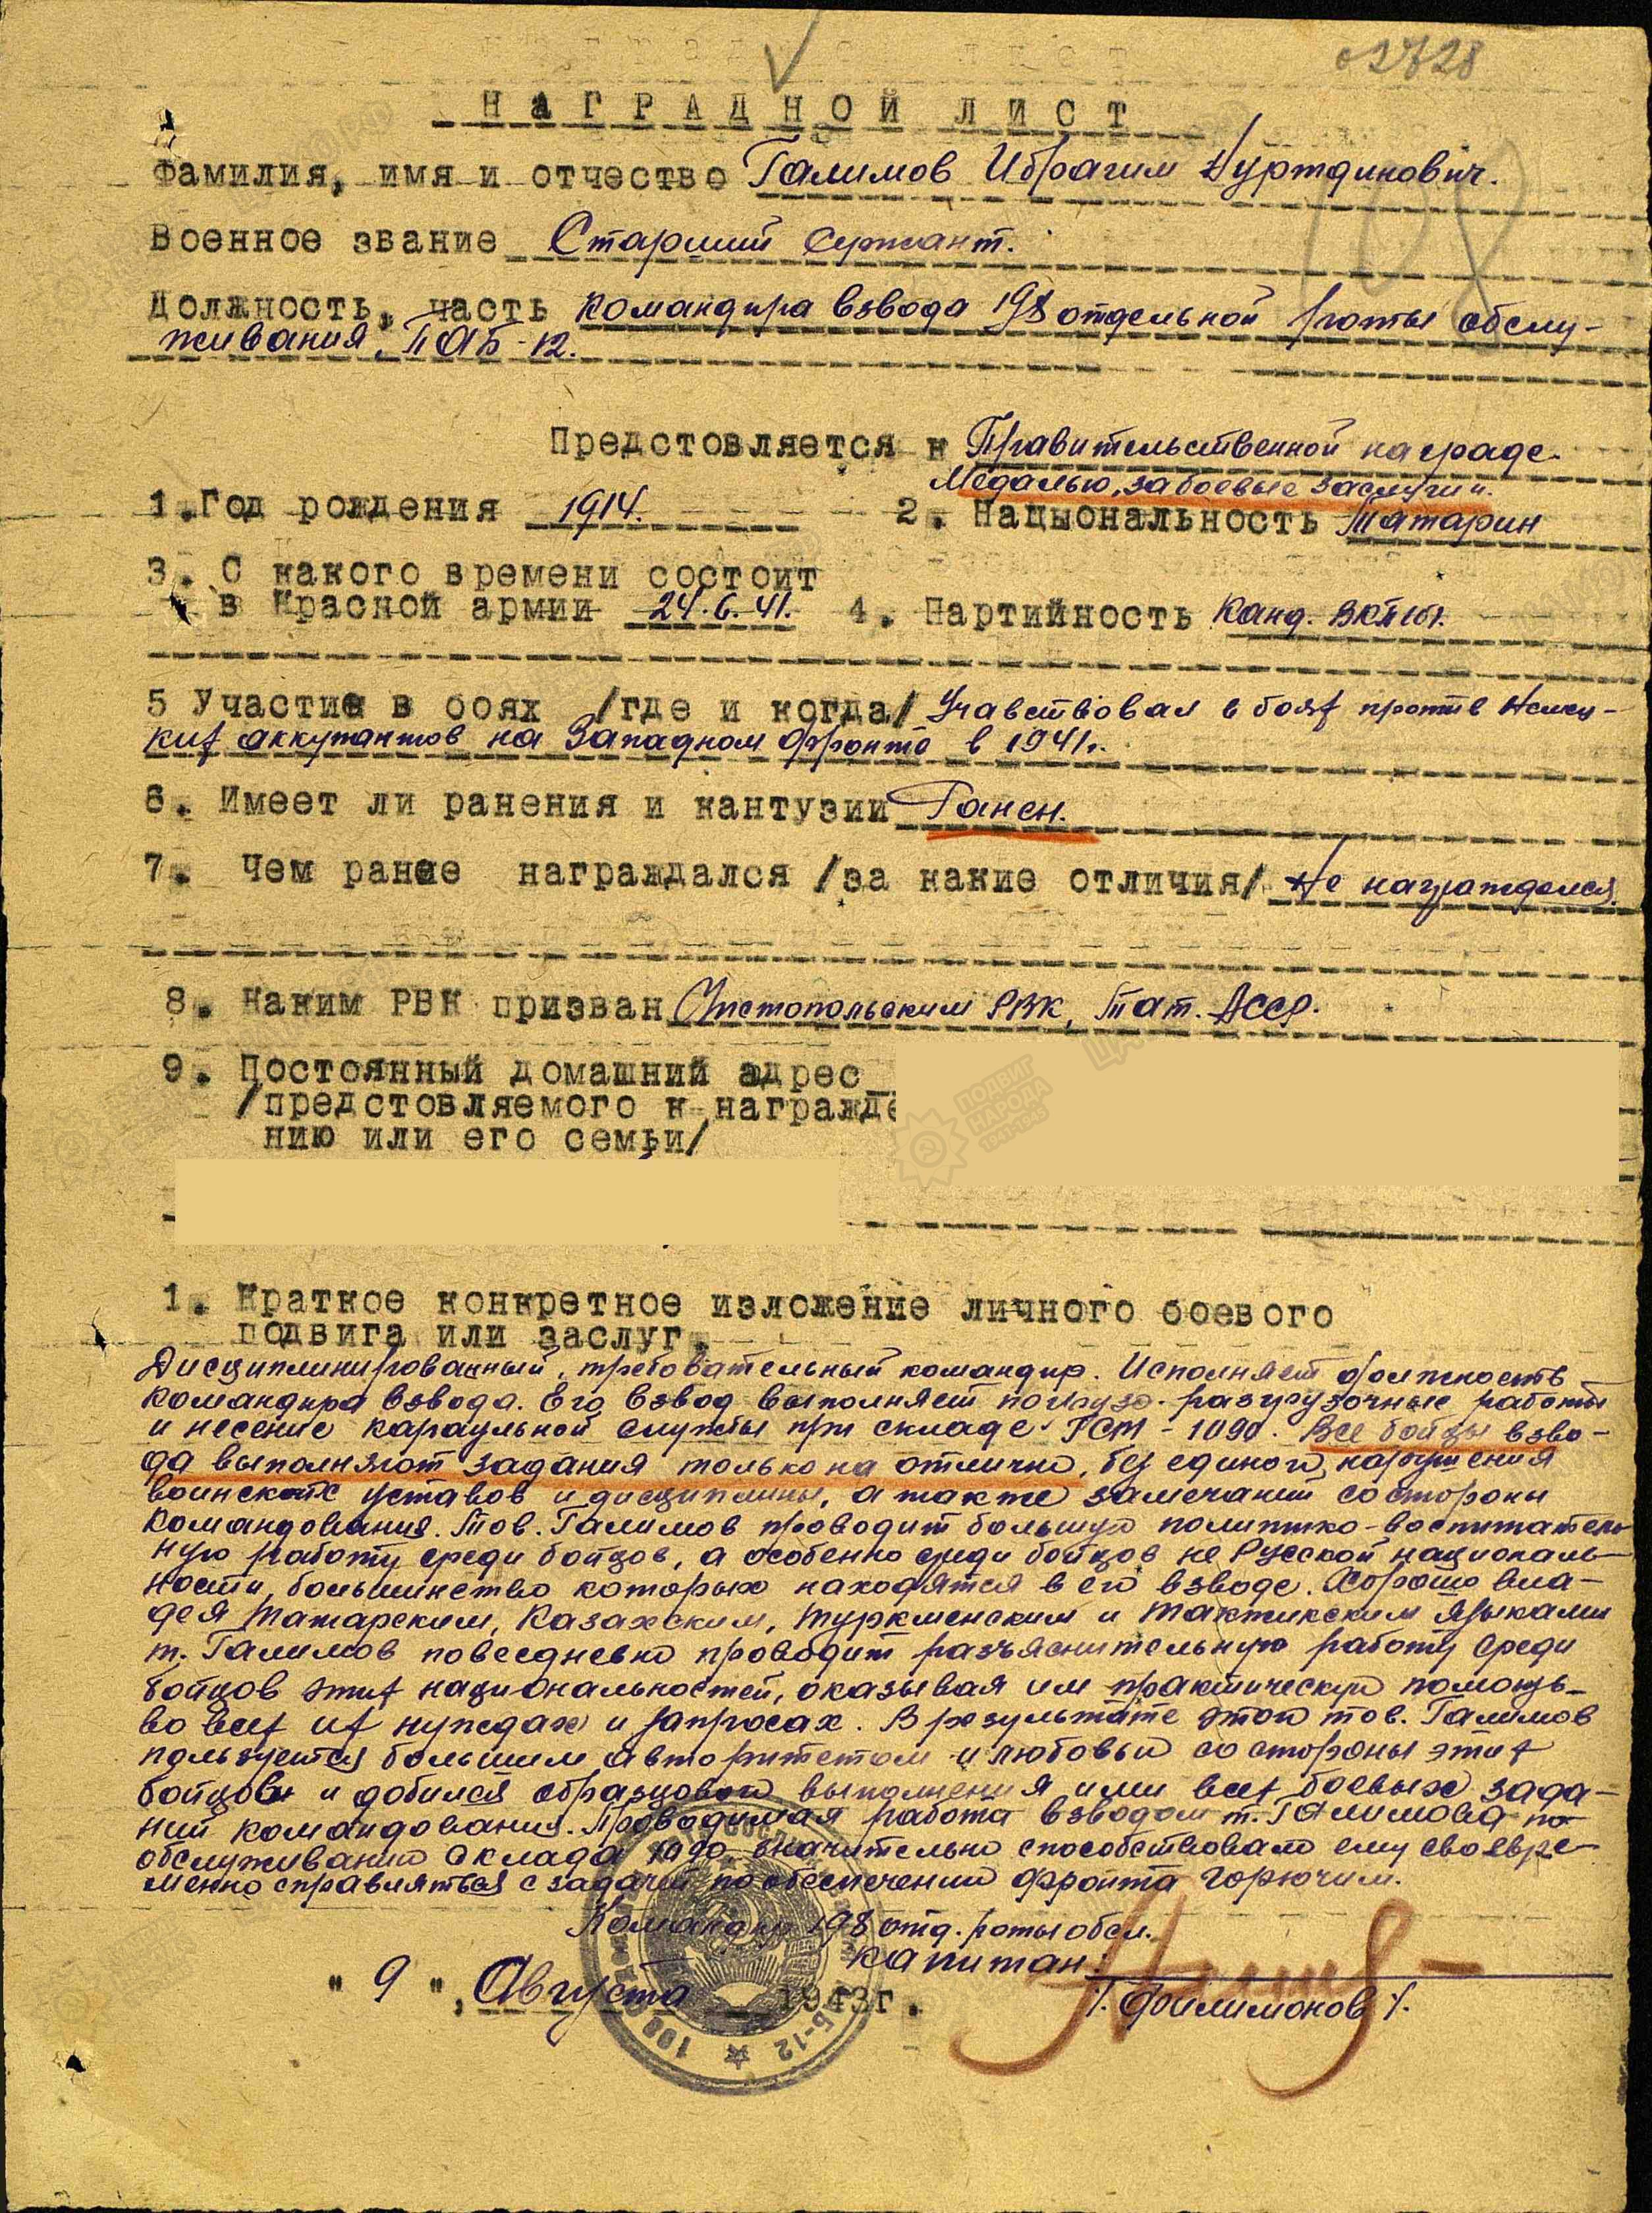 02728
НАГРАДНОЙ ЛИСТ
Фамилия, имя и отчество Галимов Ибрагим Нуртдинович.
108
Военное звание Старший сержант.
Должность, часть командира взвода 198 отдельной роты обслу-
живания, ПАБ-12.
Предстовляется к Правительственной награде
Медалью "за боевые заслуги".
1. Год рождения 1914. 2. Нацыональность Татарин
3. С какого времени состоит
в Красной армии 24.6.41. 4. Партийность Канд. ВКП(б).
5 Участие в боях /где и когда/ Учавствовал в боях против Немец-
ких аккупантов на Западном фронте в 1941г.
6. Имеет ли ранения и кантузии Ранен.
7. Чем ранее награждался /за какие отличия/ Не награждался.
8. Каким РВК призван Чистопольским РВК, Тат. АССР.
9. Постоянный домашний адрес
/предстовляемого к награжде
нию или его семьи/
ПОДВИГ
НАРОДА
1. Краткое конкретное изложение личного боевого
подвига или заслуг.
Дисциплинированный, требовательный командир. Исполняет должность
командира взвода. Его взвод выполняет погрузо-разгрузочные работы
и несение караульной службы при складе ГСМ-1090. Все бойцы взво-
да выполняют задания только на отлично, без единого нарушения
воинских уставов и дисциплины, а также замечаний со стороны
командования. Тов. Галимов проводит большую политико-воспитатель
ную работу среди бойцов, а особенно среди бойцов не Русской националь-
ности, большинство которых находятся в его взводе. Хорошо вла-
дея Татарским, Казахским, Туркменским и Таджикским языками
т. Галимов повседневно проводит разъяснительную работу среди
бойцов этих национальностей, оказывая им практическую помощь
во всех их нуждах и запросах. В результате этого тов. Галимов
пользуется большим авторитетом и любовью со стороны этих
бойцов и добился образцового выполнения ими всех боевых зада-
ний командования. Проводимая работа взводом т. Галимова по
обслуживанию склада 1090 значительно способствовала ему своевре-
менно справляться с задачей по обеспечению фронта горючим.
Командир 198 отд. роты обсл.
капитан:
"9", Августа 1943г.
/. Филимонов /.